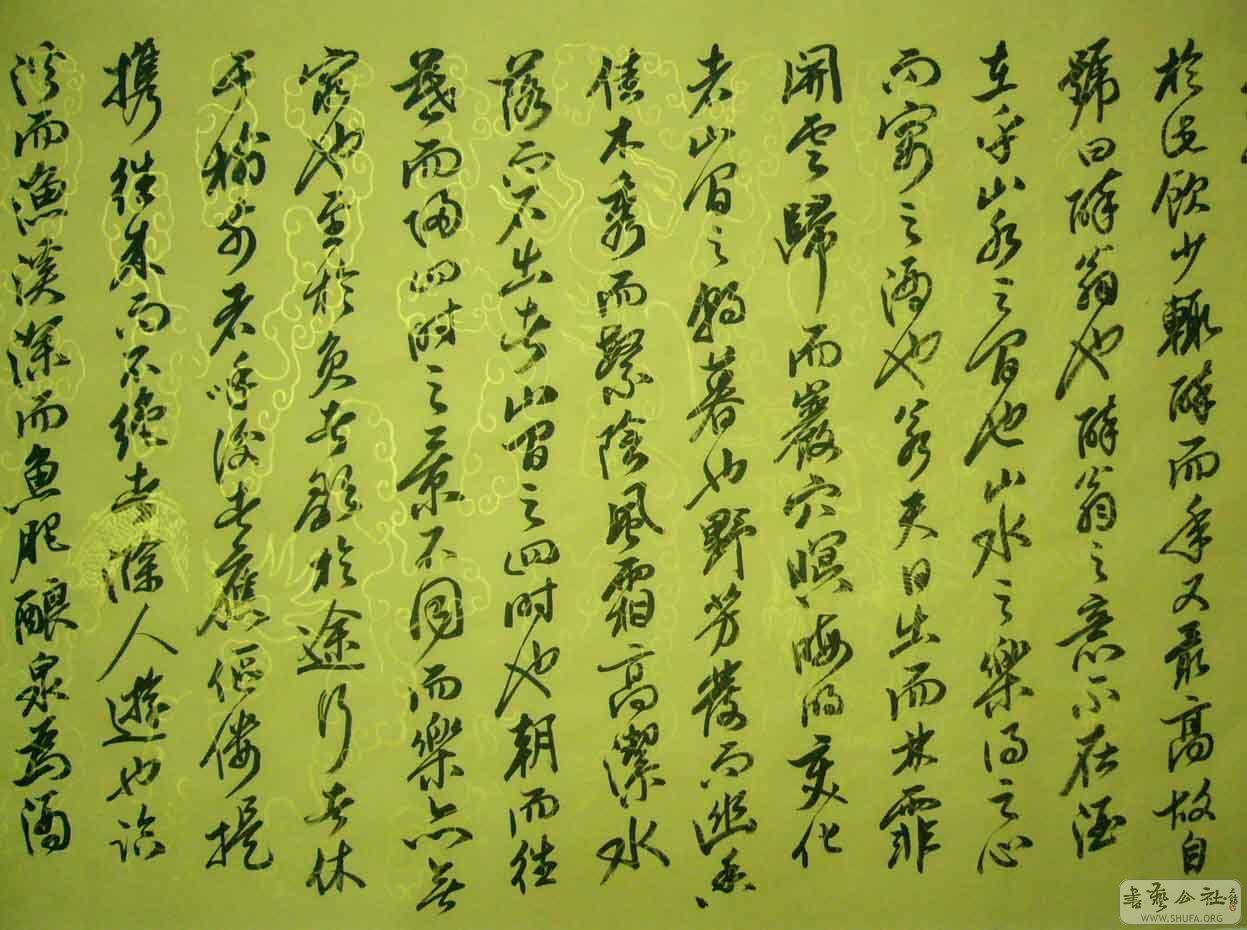 於此飲少輒醉而年又最高故自
號曰醉翁也醉翁之意不在酒
在乎山水之間也山水之樂得之心
而寓之酒也若夫日出而林霏
開雲歸而巖穴暝晦明變化
者山間之朝暮也野芳發而幽香
佳木秀而繁陰風霜高潔水
落而石出者山間之四時也朝而往
暮而歸四時之景不同而樂亦無
窮也至於負者歌於途行者休
于樹前者呼後者應傴僂提
攜往來而不絕者滁人遊也臨
溪而漁溪深而魚肥釀泉為酒
書藝公社
WWW.SHUFA.ORG